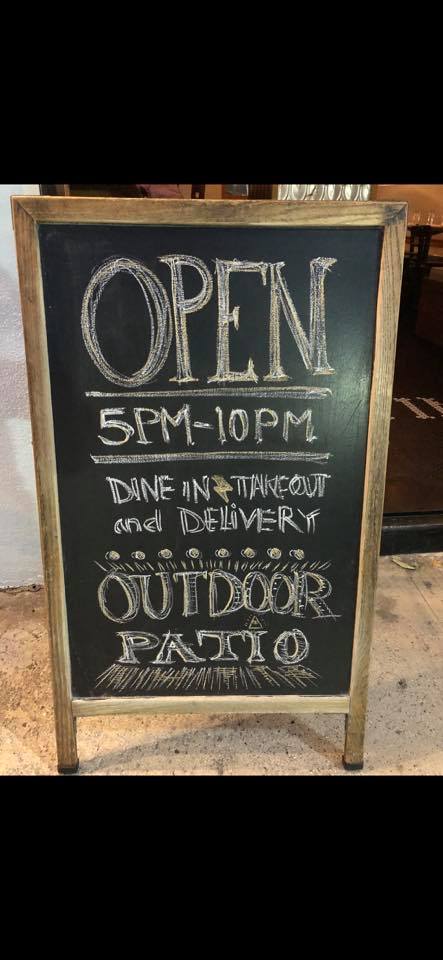 OPEN
5PM-10PM
DINE IN⚡TAKEOUT
and DELiVERY
OUTDOOR
PATIO